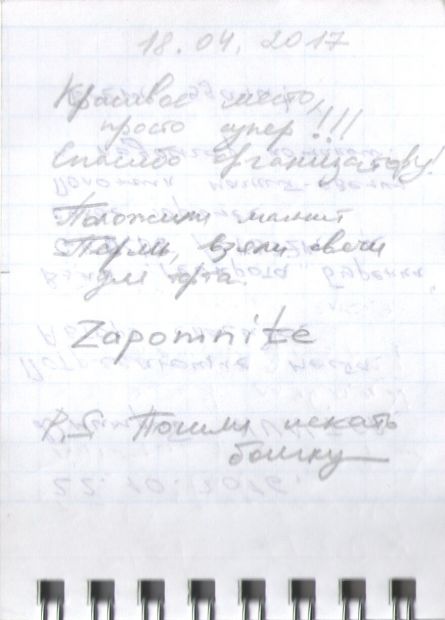 18.04.2017
Красивое место,
просто супер!!!
Спасибо организатору!
Положили магнит
Пермь, взяли свечи
для торта.
Zapomnite
P.S. Пошли искать
башку